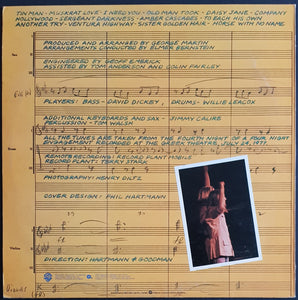 TIN MAN - MUSKRAT LOVE - I NEED YOU - OLD MAN TOOK - DAISY JANE - COMPANY
HOLLYWOOD - SERGEANT DARKNESS - AMBER CASCADES - TO EACH HIS OWN
ANOTHER TRY - VENTURA HIGHWAY - SISTER GOLDEN HAIR - HORSE WITH NO NAME
PRODUCED AND ARRANGED BY GEORGE MARTIN
ARRANGEMENTS CONDUCTED BY ELMER BERNSTEIN
ENGINEERED BY GEOFF EMERICK
ASSISTED BY TOM ANDERSON AND COLIN FAIRLEY
PLAYERS: BASS - DAVID DICKEY, DRUMS - WILLIE LEACOX
ADDITIONAL KEYBOARDS AND SAX - JIMMY CALIRE
PERCUSSION - TOM WALSH
ALL THE TUNES ARE TAKEN FROM THE FOURTH NIGHT OF A FOUR NIGHT
ENGAGEMENT RECORDED AT THE GREEK THEATRE, JULY 24, 1977.
REMOTE RECORDING: RECORD PLANT MOBILE
RECORD PLANT: TERRY STARK
PHOTOGRAPHY: HENRY DILTZ
COVER DESIGN: PHIL HARTMANN
Violins
DIRECTION: HARTMANN & GOODMAN